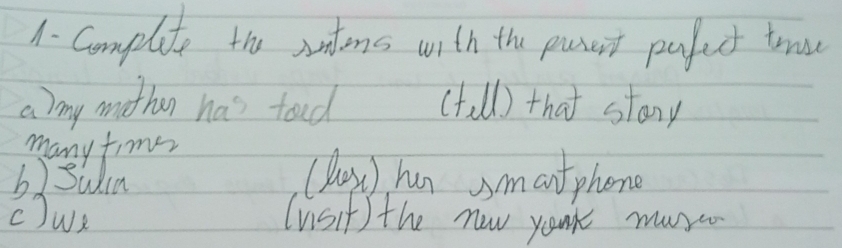 1- Complete the sentens with the present perfect tense
a) my mother has toud (tell) that story
many times
b) Julia (lose) her smartphone
c) We (visit) the new york museu